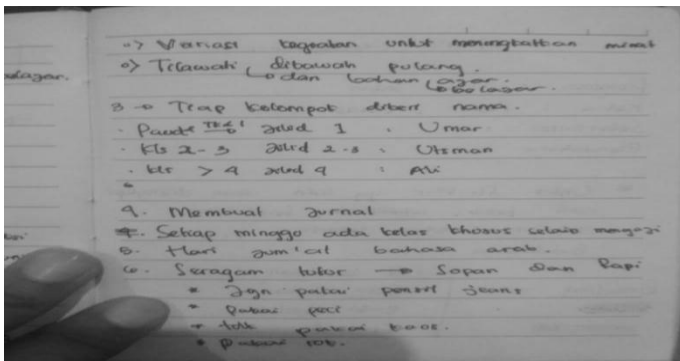 o> Variasi kegiatan untuk meningkatkan minat
belajar.
o> Tilawati, dibawah pulang.
dan bahan ajar.
belajar.
3 → Tiap kelompok diberi nama.
Paud TK & 1 Jilid 1 : Umar
Kls 2 - 3 Jilid 2-3 : Utsman
kls > 4 Jilid 4 : Ali
4. Membuat Jurnal
Setiap minggo ada kelas khusus selain mengaji
5. Hari Jum'at bahasa arab.
6. Seragam tutor → Sopan dan Rapi
* Jgn pakai pensil jeans
* Pakai peci
* tdk pakai kaos.
* Pakai rok.